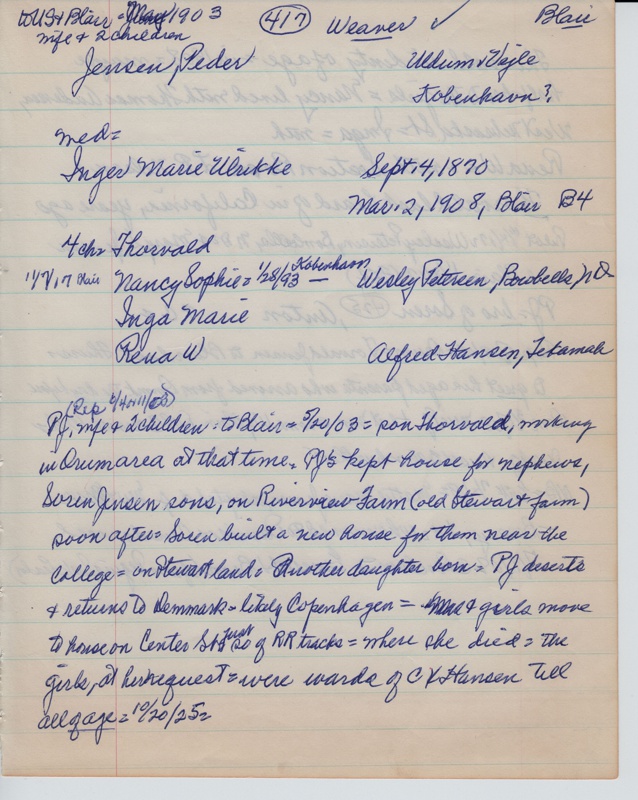 to US & Blair = May 1903 (417) Weaver ✓ Blair
wife & 2 children
Jensen, Peder Ullum v Vejle
Kobenhavn?
med=
Inger Marie Ulrikke Sept. 4, 1870
Mar. 2, 1908, Blair B4
4 ch= Thorvald
Blair Nancy Sophie = 1/28/93 Kobenhavn — Wesley Petersen, Bowbells, ND
Inga Marie
Rena W Alfred Hansen, Tekamah
(Rep
PJ, wife & 2 children = to Blair = 5/20/03 = son Thorvald, working
in Orum area at that time = PJs kept house for nephews,
Soren Jensen sons, on Riverview Farm (old Stewart farm)
soon after = Soren built a new house for them near the
college = on Stewart land = Another daughter born = PJ deserts
& returns to Denmark = likely Copenhagen = & girls move
to house on Center St just so of RR tracks = where she died = the
girls, at her request = were wards of C X Hansen till
all of age = 10/20/25 =